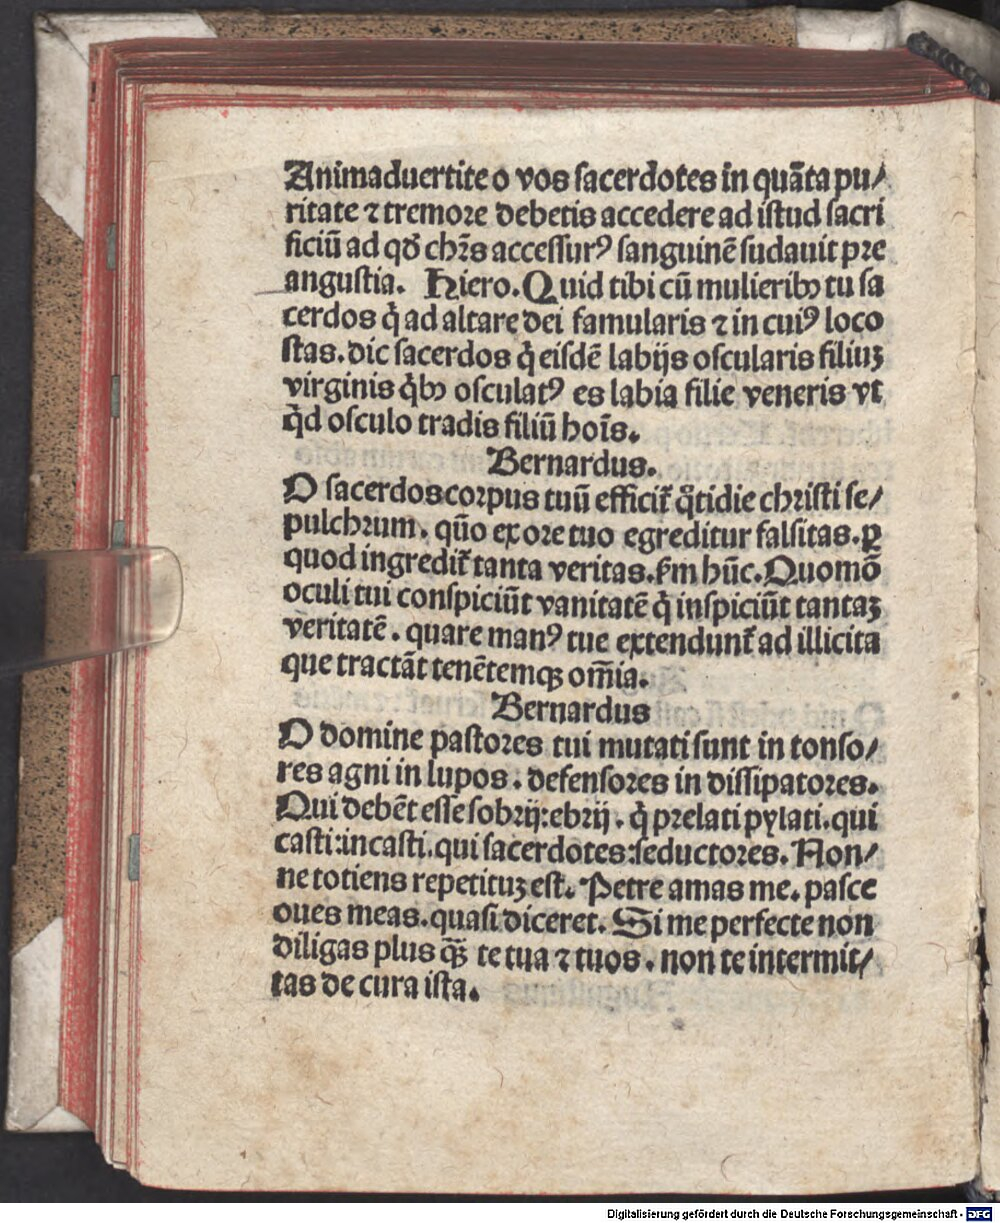 Animaduertite o vos ſacerdotes in quãta pu/
ritate ⁊ tremore debetis accedere ad iſtud ſacri
ficiũ ad qđ chr̃s acceſſurꝰ ſanguinẽ ſudauit pre
anguſtia. Hiero. Quid tibi cũ mulieribꝫ tu ſa
cerdos q̇ ad altare dei famularis ⁊ in cuiꝰ loco
ſtas. dic ſacerdos q̇ eiſdẽ labijs oſcularis filiuꝫ
virginis q̇bꝫ oſculatꝰ es labia filie veneris vt
q̇d oſculo tradis filiũ hoĩs.
Bernardus.
O ſacerdos corpus tuũ efficit̃ q̃tidie chriſti ſe/
pulchrum. quõ ex ore tuo egreditur falſitas. ꝑ
quod ingredit̃ tanta veritas. ẜm hũc. Quomõ
oculi tui conſpiciũt vanitatẽ q̇ inſpiciũt tantaꝫ
veritatẽ. quare manꝰ tue extendunt̃ ad illicita
que tractãt tenẽtemqꝫ om̃ia.
Bernardus
O domine paſtores tui mutati ſunt in tonſo/
res agni in lupos. defenſores in diſſipatores.
Qui debẽt eſſe ſobrij: ebrij. q̇ prelati pylati. qui
caſti: incaſti. qui ſacerdotes: ſeductores. Non/
ne totiens repetituꝫ eſt. Petre amas me. paſce
oues meas. quaſi diceret. Si me perfecte non
diligas plus qꝫ̃ te tua ⁊ tuos. non te intermit/
tas de cura iſta.
Digitalisierung gefördert durch die Deutsche Forschungsgemeinschaft - DFG